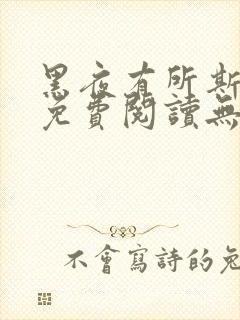 黑夜有所斯
免費閱讀無
不會寫詩的兔